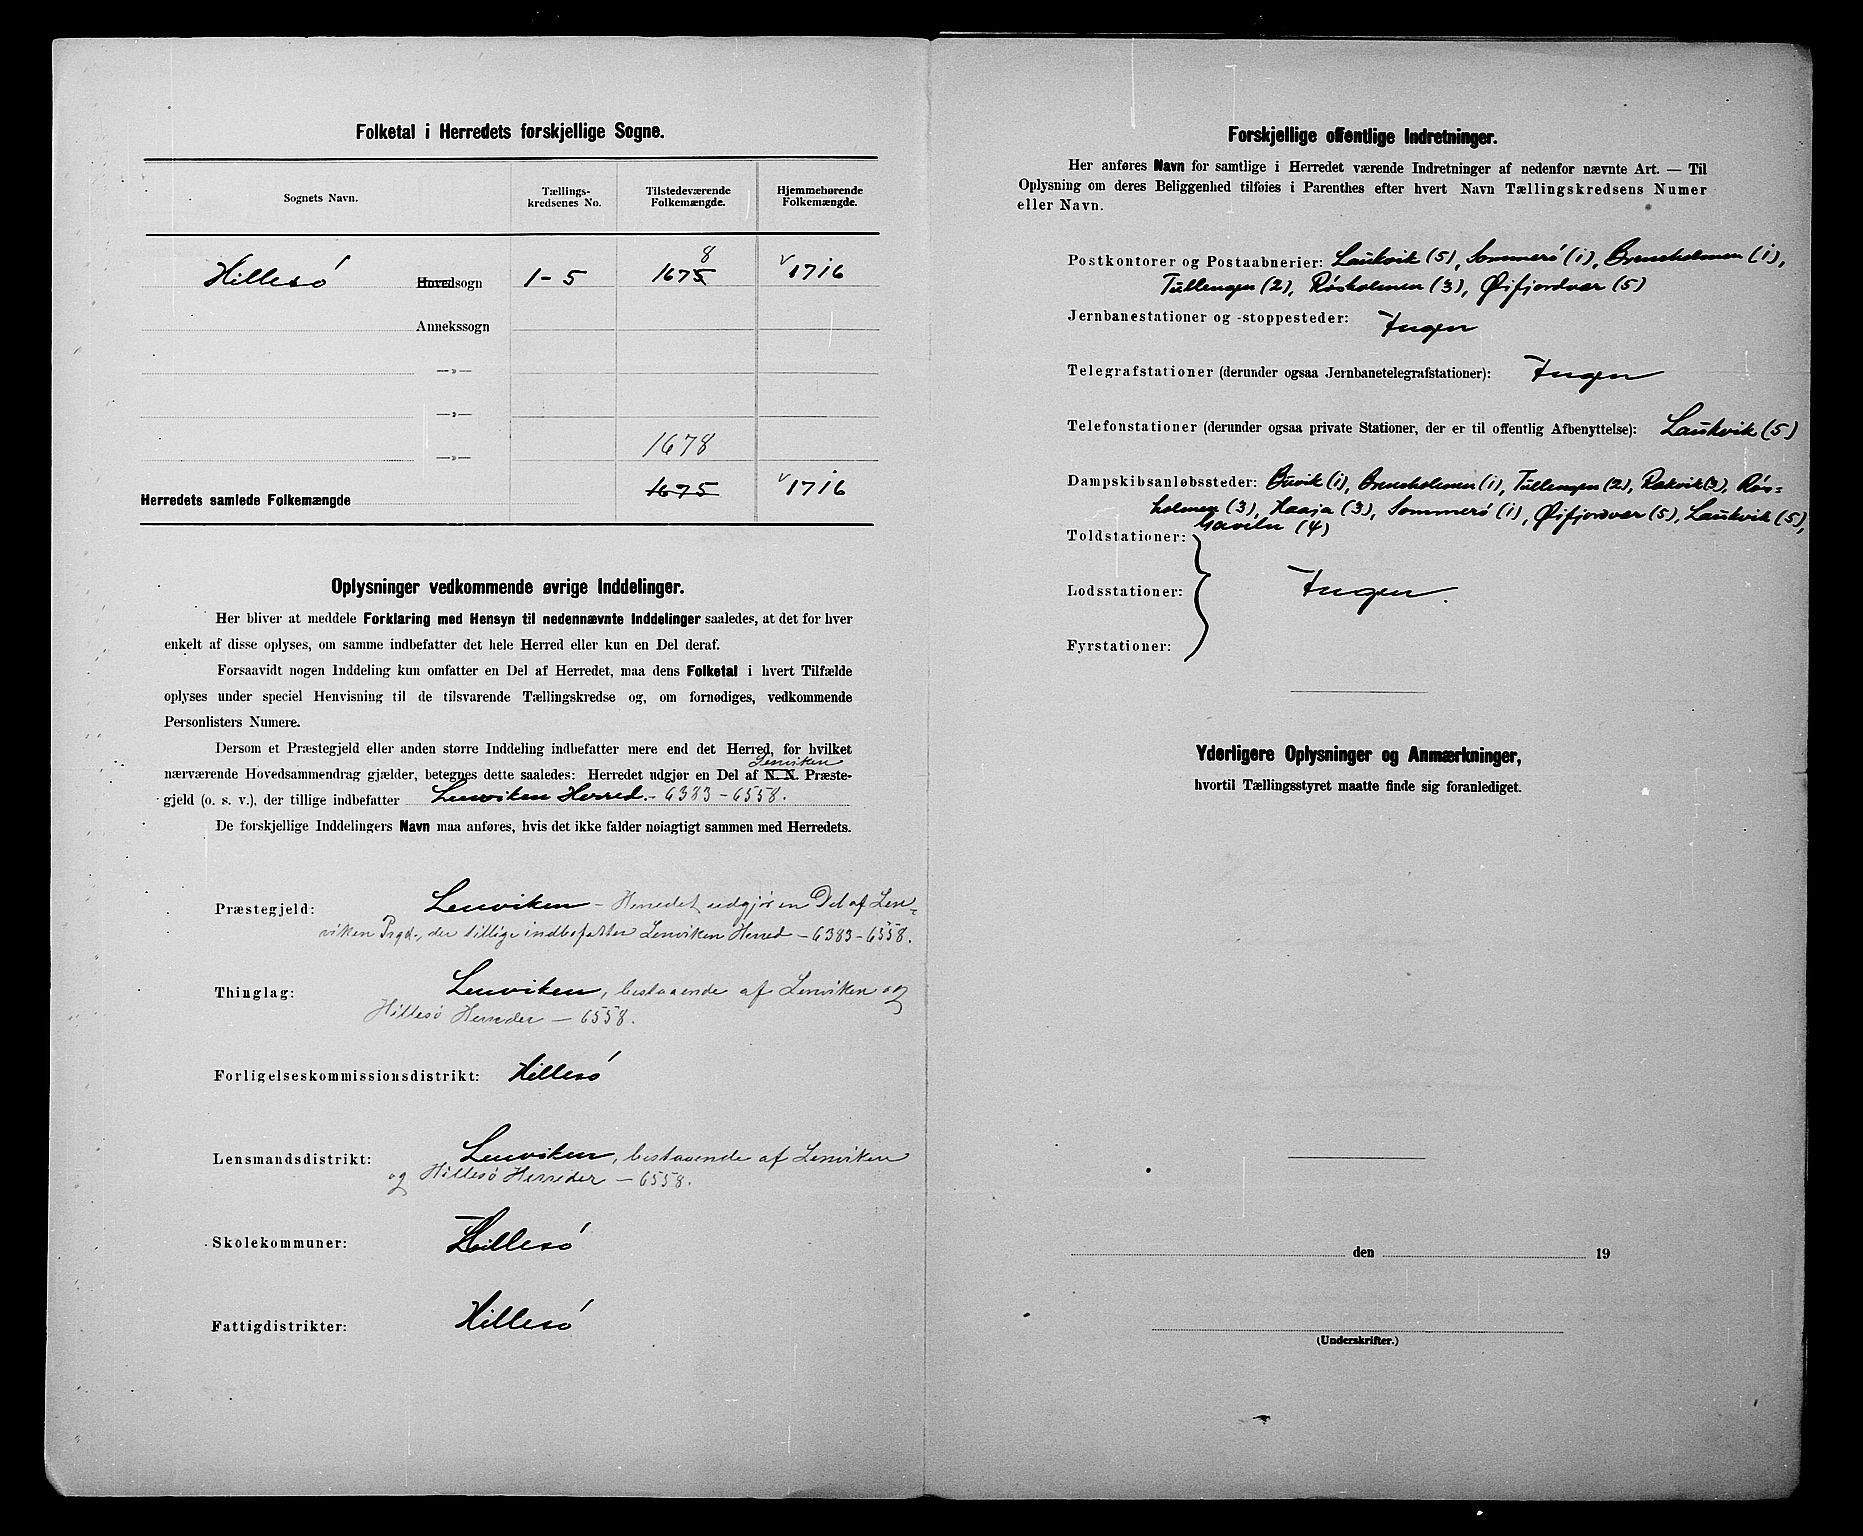 Folketal i Herredets forskjellige Sogne.
Sognets Navn.
Tællings-
kredsenes No.
Tilstedeværende
Folkemængde.
Hjemmehørende
Folkemængde.
8
Hillesö Hovedsogn 1-5 1675 1716
Annekssogn
—»—
—»—
—»— 1678
Herredets samlede Folkemængde 1675 1716
Oplysninger vedkommende øvrige Inddelinger.
Her bliver at meddele Forklaring med Hensyn til nedennævnte Inddelinger saaledes, at det for hver
enkelt af disse oplyses, om samme indbefatter det hele Herred eller kun en Del deraf.
Forsaavidt nogen Inddeling kun omfatter en Del af Herredet, maa dens Folketal i hvert Tilfælde
oplyses under speciel Henvisning til de tilsvarende Tællingskredse og, om fornødiges, vedkommende
Personlisters Numere.
Dersom et Præstegjeld eller anden større Inddeling indbefatter mere end det Herred, for hvilket
Lenviken
nærværende Hovedsammendrag gjælder, betegnes dette saaledes: Herredet udgjør en Del af N. N. Præste-
gjeld (o. s. v.), der tillige indbefatter Lenviken Herred. - 6383 - 6558.
De forskjellige Inddelingers Navn maa anføres, hvis det ikke falder nøiagtigt sammen med Herredets.
Præstegjeld: Lenviken - Herredet udgjör en Del af Len-
viken Prgd., der tillige indbefatter Lenviken Herred - 6383 - 6558.
Thinglag: Lenviken, bestaaende af Lenviken og
Hillesö Herreder - 6558.
Forligelseskommissionsdistrikt: Hillesö
Lensmandsdistrikt: Lenviken, bestaaende af Lenviken
og Hillesö Herreder - 6558.
Skolekommuner: Hillesö
Fattigdistrikter: Hillesö
Forskjellige offentlige Indretninger.
Her anføres Navn for samtlige i Herredet værende Indretninger af nedenfor nævnte Art. — Til
Oplysning om deres Beliggenhed tilføies i Parenthes efter hvert Navn Tællingskredsens Numer
eller Navn.
Postkontorer og Postaabnerier: Laukvik (5), Sommerö (1), Brensholmen (1),
Tullengen (2), Røsholmen (3), Øifjordvær (5)
Jernbanestationer og -stoppesteder: Ingen
Telegrafstationer (derunder ogsaa Jernbanetelegrafstationer): Ingen
Telefonstationer (derunder ogsaa private Stationer, der er til offentlig Afbenyttelse): Laukvik (5)
Dampskibsanløbssteder: Buvik (1), Brensholmen (1), Tullengen (2), Rekvik (3), Røs-
holmen (3), Haaja (3), Sommerö (1), Øifjordvær (5), Laukvik (5),
(4)
Toldstationer:
Lodsstationer: Ingen.
Fyrstationer:
Yderligere Oplysninger og Anmærkninger,
hvortil Tællingsstyret maatte finde sig foranlediget.
den 19
(Underskrifter.)